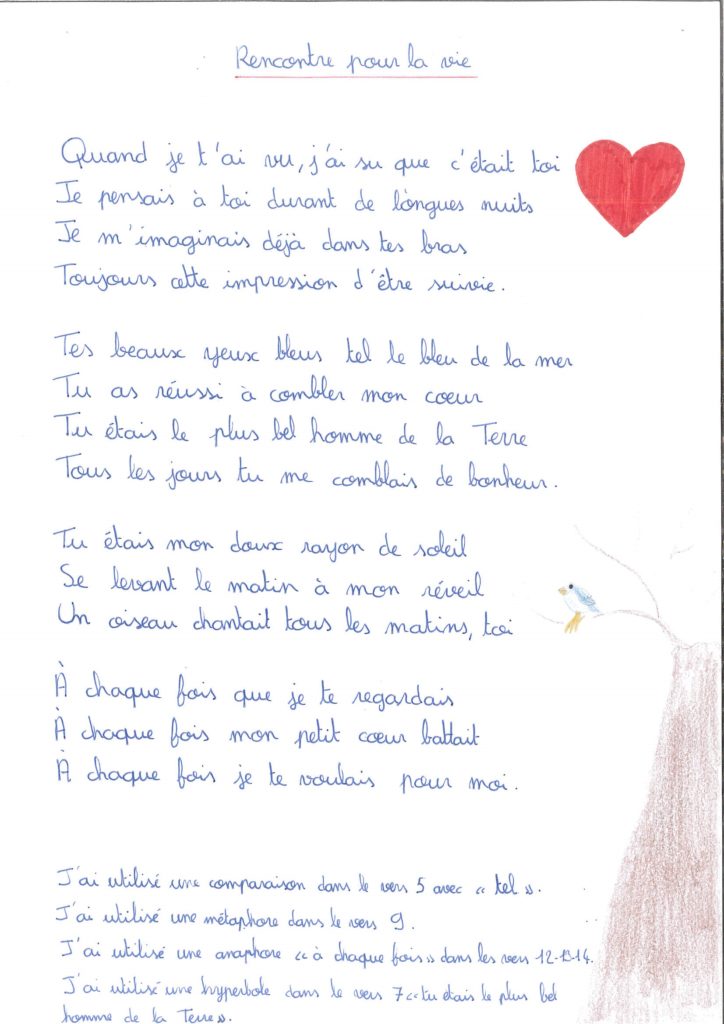 Rencontre pour la vie
Quand je t'ai vu, j'ai su que c'était toi
Je pensais à toi durant de longues nuits
Je m'imaginais déjà dans tes bras
Toujours cette impression d'être suivie.
Tes beaux yeux bleus tel le bleu de la mer
Tu as réussi à combler mon coeur
Tu étais le plus bel homme de la Terre
Tous les jours tu me comblais de bonheur.
Tu étais mon doux rayon de soleil
Se levant le matin à mon réveil
Un oiseau chantait tous les matins, toi
À chaque fois que je te regardais
À chaque fois mon petit coeur battait
À chaque fois je te voulais pour moi.
J'ai utilisé une comparaison dans le vers 5 avec « tel ».
J'ai utilisé une métaphore dans le vers 9.
J'ai utilisé une anaphore « à chaque fois » dans les vers 12-13-14.
J'ai utilisé une hyperbole dans le vers 7 « tu étais le plus bel
homme de la Terre ».